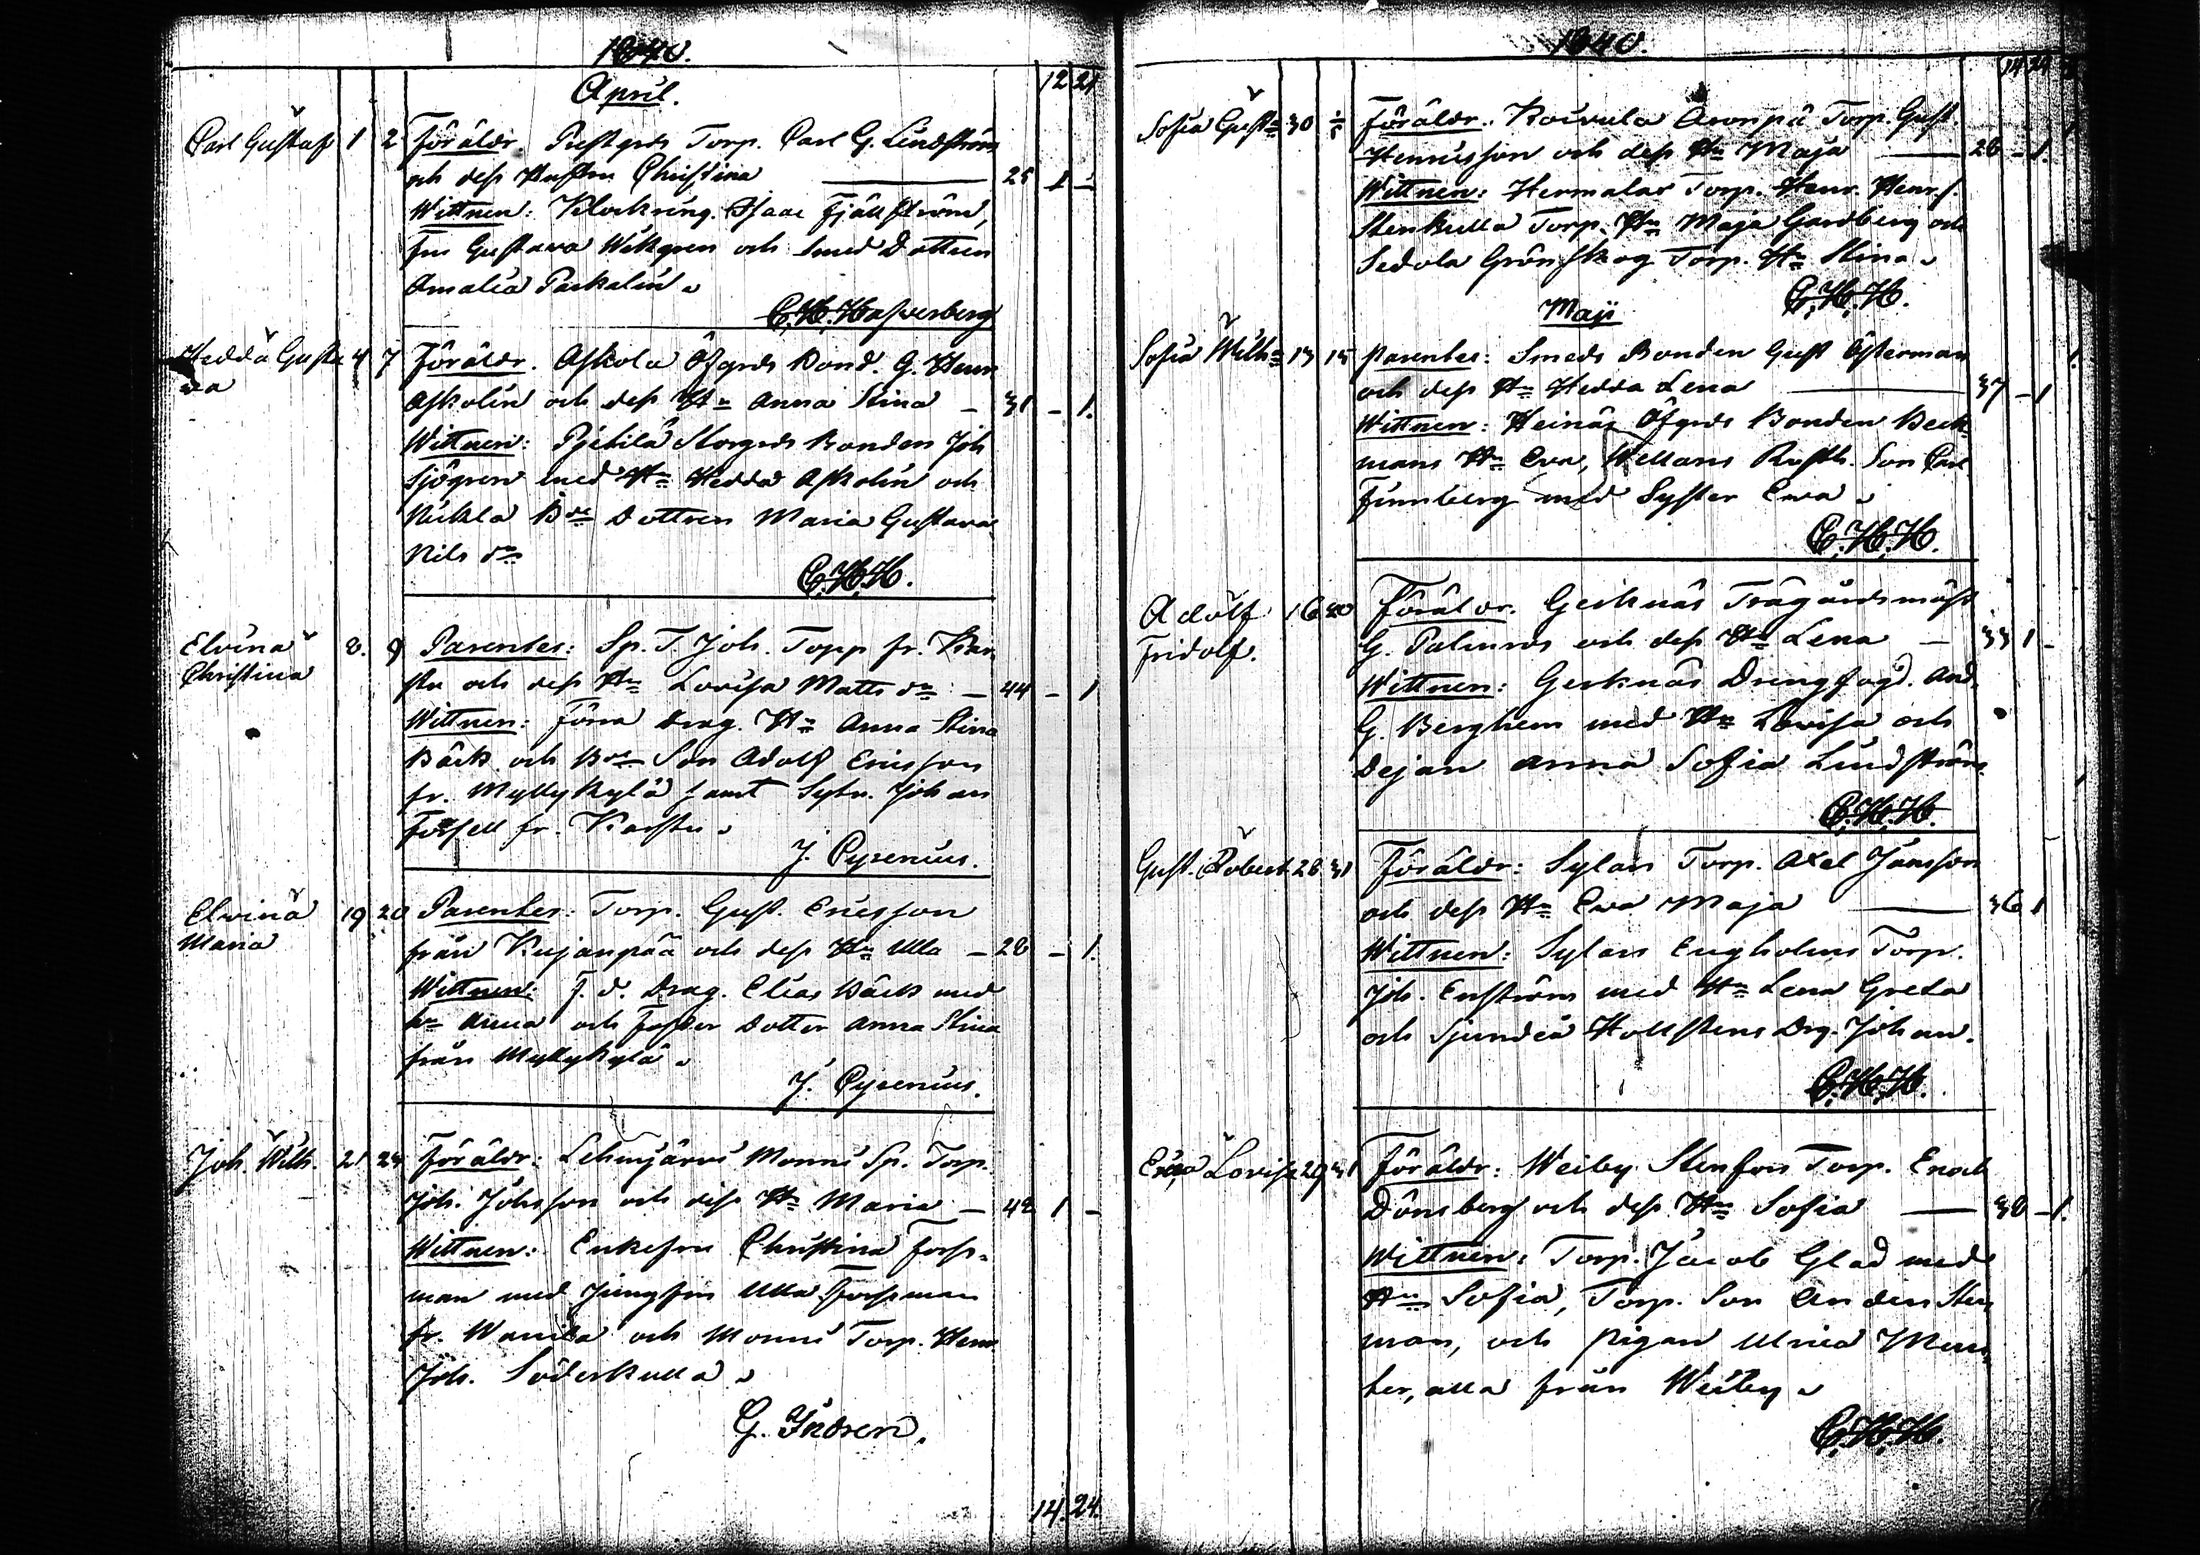 1840.
April.
12 21
Carl Gustaf 1 2 Föräldr. Prestgrds Torp. Carl G. Lindström
och dess Hustru Christina — 25 1 –
Wittnen: Klockring. Isaac Fjällström,
fru Gustava Wikgren och Smed Dottren
Amalia Paskalin.
C.H.Hasverberg
Hedda Gusta 4 7 Föräldr. Askola Öfgrds Bond. G. Henr
va
Askolin och dess Hn Anna Stina – 31 – 1.
Wittnen: Pjetilä Storgrds Bonden Joh
Sjögren med Hn Hedda Askolin och
Nickla Bde Dottren Maria Gustava
Nils dr
C.H.H.
Elvina 8. 9 Parentes: Sp. T. Joh. Topp fr. Kar
Christina
stu och dess Hn Lovisa Matts dr – 44 – 1
Wittnen: förra Drag. Hn Anna Stina
Bäck och Bde Son Adolf Ericsson
fr. Myllykylä samt Sytn. Johan
Forsell fr. Karstu.
J. Cygenius.
Elvina 19 20 Parentes: Torp. Gust. Ericsson
Maria
från Kujanpää och dess Hn Ulla – 28 – 1.
Wittnen: f. d. Drag. Elias Bäck med
hn Anna och Foster Dotter Anna Stina
från Myllykylä.
J. Cygenius.
Joh. Wilh. 21 24 Föräldr: Lehmjärvi Monni Sp. Torp.
Joh. Johsson och dess Hn Maria – 42 1 –
Wittnen: Enkefru Christina Forss-
man med Jungfru Ulla Forssman
fr. Wanila och Monni Torp. Henr
Joh. Söderkulla.
G. Indren.
14. 24.
1840.
14 24
Sofia Gust 30 Föräldr. Koivula Aronpä Torp. Gust.
Henricsson och dess Hn Maja — 28 – 1.
Wittnen: Hermalas Torp. Henr. Henr.s.
Stenkulla Torp. Hn Maja Gardberg och
Sedola Grönskog Torp. Hn Stina.
C.H.H.
Maji
Sofia Wilh 13 15 Parentes: Smeds Bonden Gust Österman
och dess Hn Hedda Lena — 37 – 1
Wittnen: Heinäs Öfgrds Bonden Beck-
mans Hn Eva, Wellans Rusth. Son Carl
Finnberg med Syster Ewa.
C.H.H.
Adolf 16 20 Föräldr. Gerknäs Trägårdsmäst
Fridolf.
G. Palmros och dess Hn Lena – 33 1 –
Wittnen: Gerknäs Drengfogd. And.
G. Berghem med Hn Lovisa och
Dejan Anna Sofia Lindström
C.H.H.
Gust. Robert 28 31 Föräldr: Sylars Torp. Axel Jansson
och dess Hn Ewa Maja — 36 1
Wittnen: Sylars Engholms Torp.
Joh. Enström med Hn Lena Greta
och Sjundeå Hollstens Drg. Johan.
C.H.H.
Lovisa 29 31 Föräldr: Weiby Stenfors Torp. Enoch
Dönsberg och dess Hn Sofia — 38 – 1.
Wittnen: Torp. Jacob Glad med
Hn Sofia, Torp. Son Anders Sten
man, och Pigan Ulrica Mun-
ter, alla från Weiby.
C.H.H.